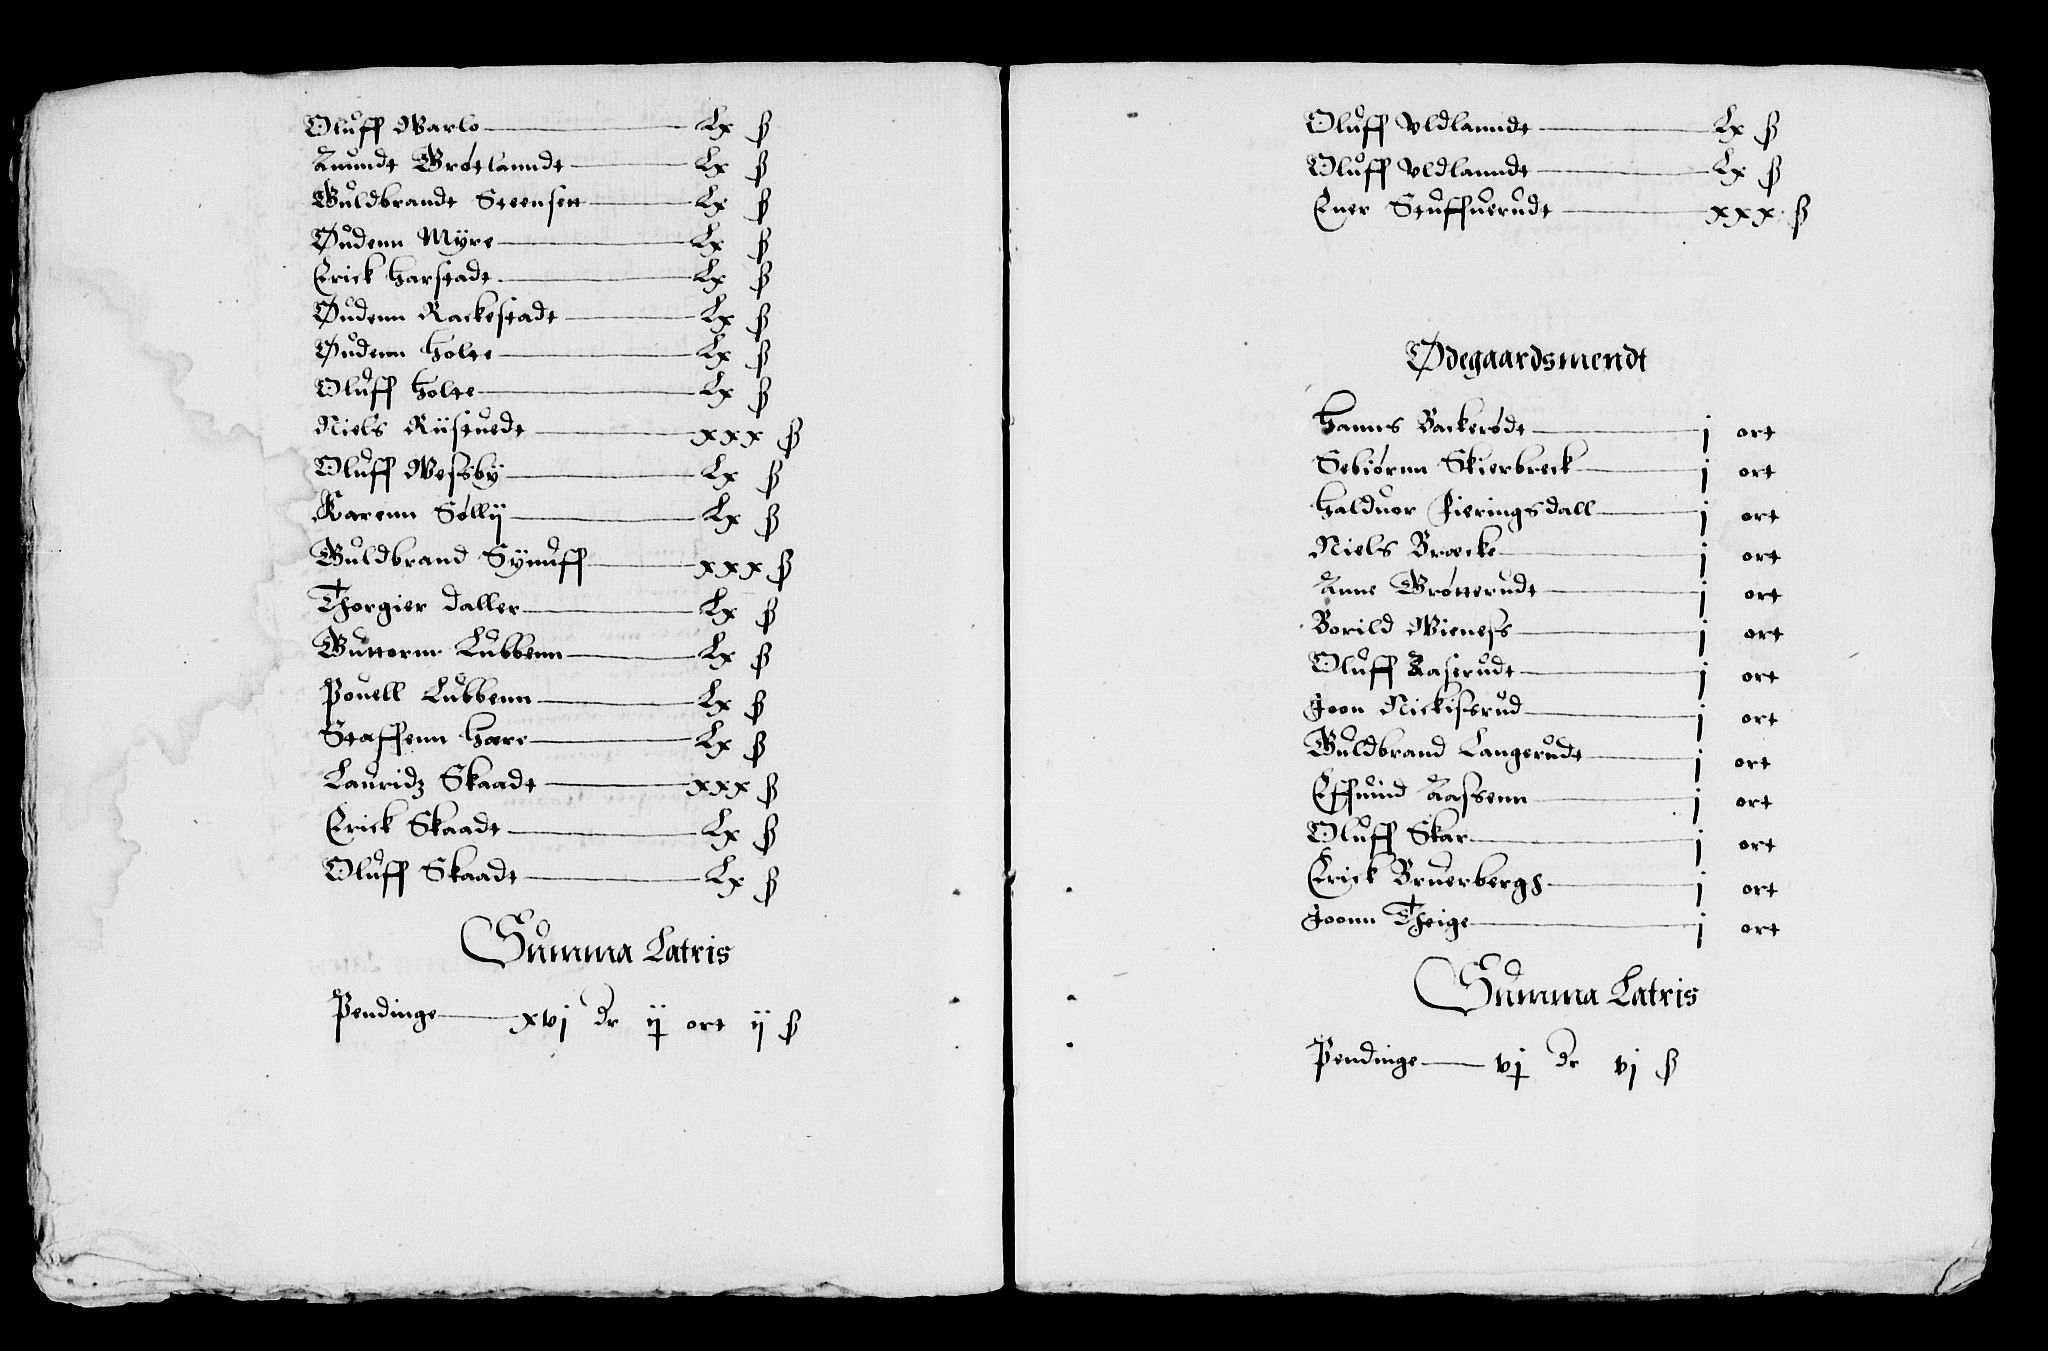 Oluff Warlo Lx ß
Amundt Grøtlanndt Lx ß
Guldbrandt Steensen Lx ß
Øudenn Myre Lx ß
Erick Harstadt Lx ß
Øudenn Rackestadt Lx ß
Øudenn Holte Lx ß
Oluff Holte Lx ß
Niels Riistuedt xxx ß
Oluff Wessby Lx ß
Karenn Sølly Lx ß
Guldbrand Synuff xxx ß
Thorgier Daller Lx ß
Guttorm Lubbenn Lx ß
Pouell Lubbenn Lx ß
Staffenn Hære Lx ß
Lauridz Skaadt xxx ß
Erick Skaadt Lx ß
Oluff Skaadt Lx ß
Summa Latris
Pendinge xvj dr ij ort ij ß
Oluff Vldlanndt Lx ß
Oluff Vldlanndt Lx ß
Ener Stuffuerudt xxx ß
Ødegaardsmendt
Hanns Backerødt j ort
Sebiørnn Skierbreck j ort
Halduor Pieringsdall j ort
Niels Bræcke j ort
Anne Grøtterudt j ort
Borild Wieness j ort
Oluff Aaserudt j ort
Joon Nickissrud j ort
Guldbrand Langerudt j ort
Effuind Aassenn j ort
Oluff Skar j ort
Erick Bruerbergh j ort
Joonn Theige j ort
Summa Latris
Pendinge vj dr vj ß